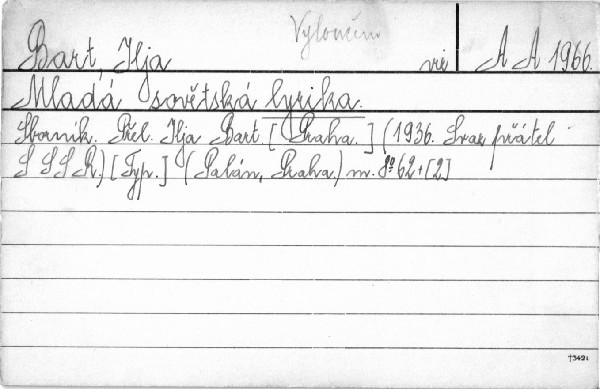 Vyloučeno
Bart, Ilja vű A A 1966.
Mladá sovětská lyrika.
Sborník. Přel. Ilja Bart. [Praha.] (1936. Svaz přátel
S S S R.) [Typ.] (Palán, Praha.) m. 8° 62+[2]
†3421